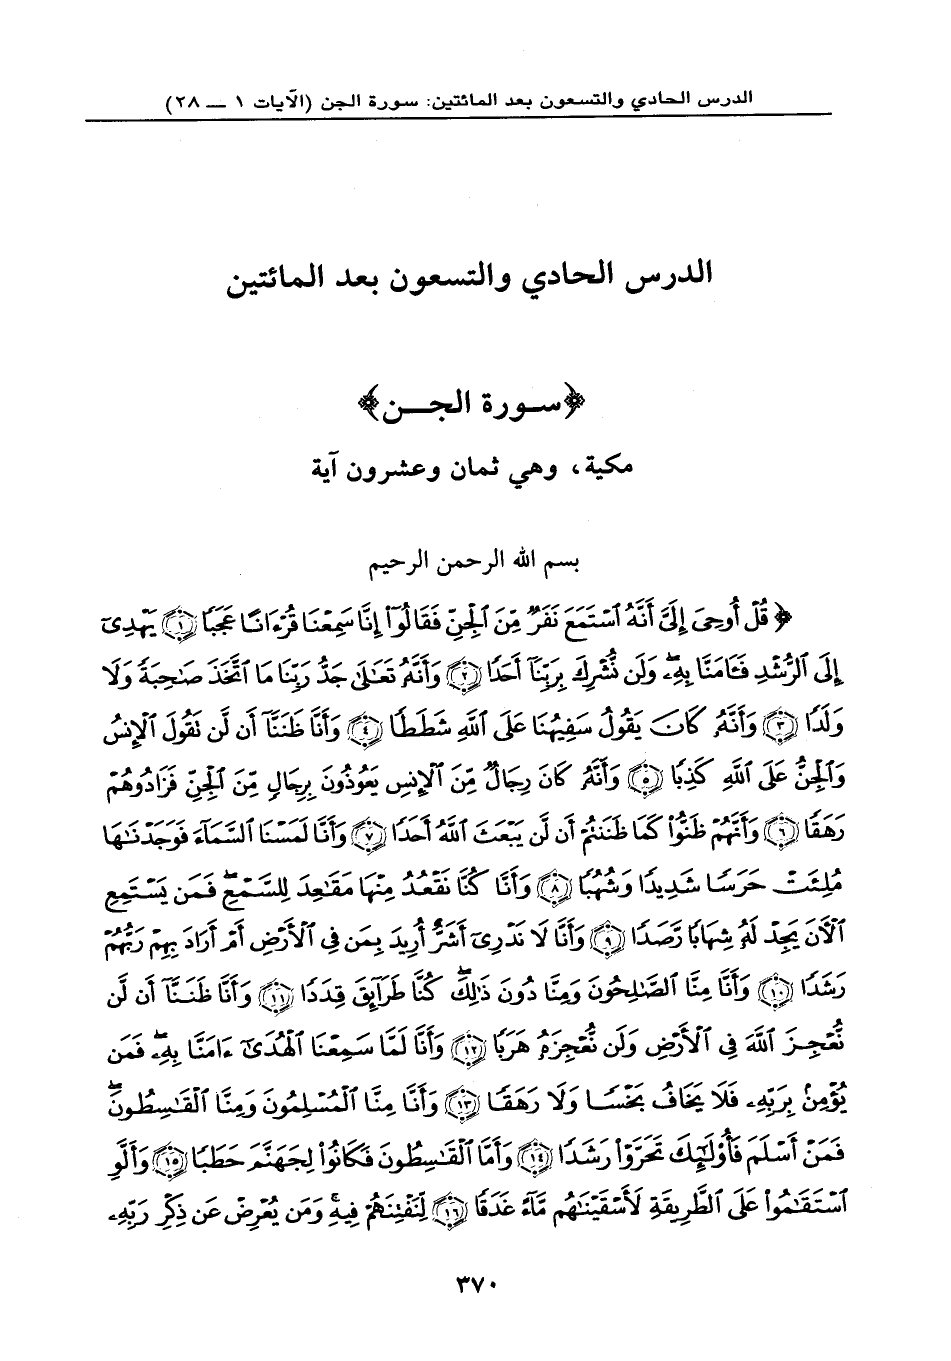 الدرس الحادي والتسعون بعد المائتين: سورة الجن (الآيات ١ ــ ٢٨)
الدرس الحادي والتسعون بعد المائتين
﴿سـورة الجـــن﴾
مكية، وهي ثمان وعشرون آية
بسم الله الرحمن الرحيم
﴿ قُلْ أُوحِىَ إِلَىَّ أَنَّهُ ٱسْتَمَعَ نَفَرٌ مِّنَ ٱلْجِنِّ فَقَالُوٓا۟ إِنَّا سَمِعْنَا قُرْءَانًا عَجَبًا ۝١ يَهْدِىٓ
إِلَى ٱلرُّشْدِ فَـَٔامَنَّا بِهِۦ ۖ وَلَن نُّشْرِكَ بِرَبِّنَآ أَحَدًا ۝٢ وَأَنَّهُۥ تَعَٰلَىٰ جَدُّ رَبِّنَا مَا ٱتَّخَذَ صَٰحِبَةً وَلَا
وَلَدًا ۝٣ وَأَنَّهُۥ كَانَ يَقُولُ سَفِيهُنَا عَلَى ٱللَّهِ شَطَطًا ۝٤ وَأَنَّا ظَنَنَّآ أَن لَّن تَقُولَ ٱلْإِنسُ
وَٱلْجِنُّ عَلَى ٱللَّهِ كَذِبًا ۝٥ وَأَنَّهُۥ كَانَ رِجَالٌ مِّنَ ٱلْإِنسِ يَعُوذُونَ بِرِجَالٍ مِّنَ ٱلْجِنِّ فَزَادُوهُمْ
رَهَقًا ۝٦ وَأَنَّهُمْ ظَنُّوا۟ كَمَا ظَنَنتُمْ أَن لَّن يَبْعَثَ ٱللَّهُ أَحَدًا ۝٧ وَأَنَّا لَمَسْنَا ٱلسَّمَآءَ فَوَجَدْنَٰهَا
مُلِئَتْ حَرَسًا شَدِيدًا وَشُهُبًا ۝٨ وَأَنَّا كُنَّا نَقْعُدُ مِنْهَا مَقَٰعِدَ لِلسَّمْعِ ۖ فَمَن يَسْتَمِعِ
ٱلْـَٔانَ يَجِدْ لَهُۥ شِهَابًا رَّصَدًا ۝٩ وَأَنَّا لَا نَدْرِىٓ أَشَرٌّ أُرِيدَ بِمَن فِى ٱلْأَرْضِ أَمْ أَرَادَ بِهِمْ رَبُّهُمْ
رَشَدًا ۝١٠ وَأَنَّا مِنَّا ٱلصَّٰلِحُونَ وَمِنَّا دُونَ ذَٰلِكَ ۖ كُنَّا طَرَآئِقَ قِدَدًا ۝١١ وَأَنَّا ظَنَنَّآ أَن لَّن
نُّعْجِزَ ٱللَّهَ فِى ٱلْأَرْضِ وَلَن نُّعْجِزَهُۥ هَرَبًا ۝١٢ وَأَنَّا لَمَّا سَمِعْنَا ٱلْهُدَىٰٓ ءَامَنَّا بِهِۦ ۖ فَمَن
يُؤْمِنۢ بِرَبِّهِۦ فَلَا يَخَافُ بَخْسًا وَلَا رَهَقًا ۝١٣ وَأَنَّا مِنَّا ٱلْمُسْلِمُونَ وَمِنَّا ٱلْقَٰسِطُونَ ۖ
فَمَنْ أَسْلَمَ فَأُو۟لَٰٓئِكَ تَحَرَّوْا۟ رَشَدًا ۝١٤ وَأَمَّا ٱلْقَٰسِطُونَ فَكَانُوا۟ لِجَهَنَّمَ حَطَبًا ۝١٥ وَأَلَّوِ
ٱسْتَقَٰمُوا۟ عَلَى ٱلطَّرِيقَةِ لَأَسْقَيْنَٰهُم مَّآءً غَدَقًا ۝١٦ لِّنَفْتِنَهُمْ فِيهِ ۚ وَمَن يُعْرِضْ عَن ذِكْرِ رَبِّهِۦ
٣٧٠